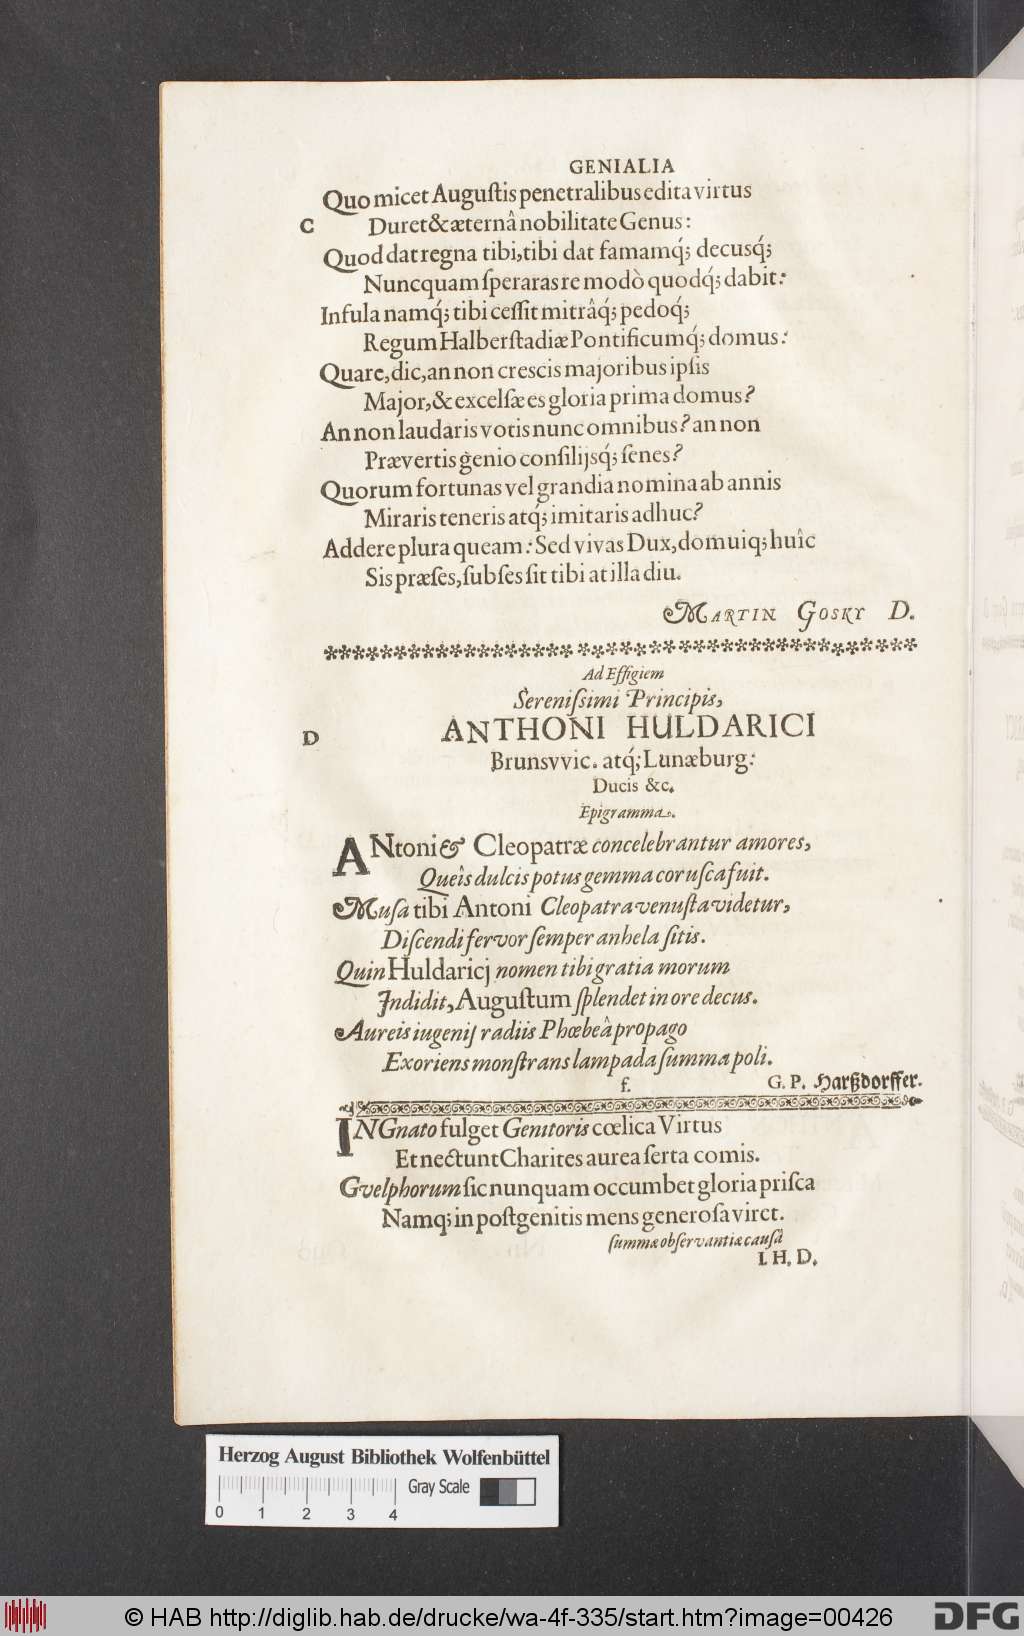 GENIALIA
Quo micet Auguſtis penetralibus edita virtus
C Duret & æternâ nobilitate Genus:
Quod dat regna tibi, tibi dat famamq́; decusq́;
Nuncquam ſperaras re modò quodq́; dabit:
Inſula namq́; tibi ceſſit mitrâq́; pedoq́;
Regum Halberſtadiæ Pontificumq́; domus:
Quare, dic, an non creſcis majoribus ipſis
Major, & excelſæ es gloria prima domus?
An non laudaris votis nunc omnibus? an non
Prævertis genio conſilijsq́; ſenes?
Quorum fortunas vel grandia nomina ab annis
Miraris teneris atq́; imitaris adhuc?
Addere plura queam: Sed vivas Dux, domuiq; huîc
Sis præſes, ſubſes ſit tibi at illa diu.
MARTIN GOSKY D.
Ad Effigiem
Sereniſsimi Principis,
D ANTHONI HULDARICI
Brunsvvic. atq́; Lunæburg:
Ducis &c.
Epigramma.
ANtoni & Cleopatræ concelebrantur amores,
Queîs dulcis potus gemma coruſca fuit.
Muſa tibi Antoni Cleopatra venuſta videtur,
Diſcendi fervor ſemper anhela ſitis.
Quin Huldaricj nomen tibi gratia morum
Indidit, Auguſtum ſplendet in ore decus.
Aureis iugenij radiis Phœbeâ propago
Exoriens monſtrans lampada ſumma poli.
f. G. P. Harßdorffer.
INGnato fulget Genitoris cœlica Virtus
Et nectunt Charites aurea ſerta comis.
Gvelphorum ſic nunquam occumbet gloria priſca
Namq; in poſtgenitis mens generoſa viret.
ſummæ obſervantiæ cauſâ
I. H. D.
Herzog August Bibliothek Wolfenbüttel
Gray Scale
0 1 2 3 4
© HAB http://diglib.hab.de/drucke/wa-4f-335/start.htm?image=00426
DFG